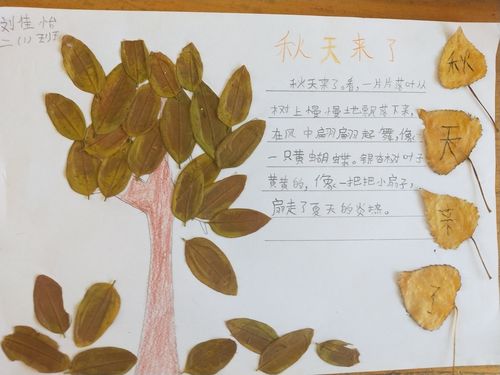 刘佳怡
二（1）班
秋天来了
秋天来了。看，一片片落叶从
树上慢慢地飘落下来，
在风中翩翩起舞，像
一只黄蝴蝶。银杏树叶子
黄黄的，像一把把小扇子，
扇走了夏天的炎热。
秋
天
来
了